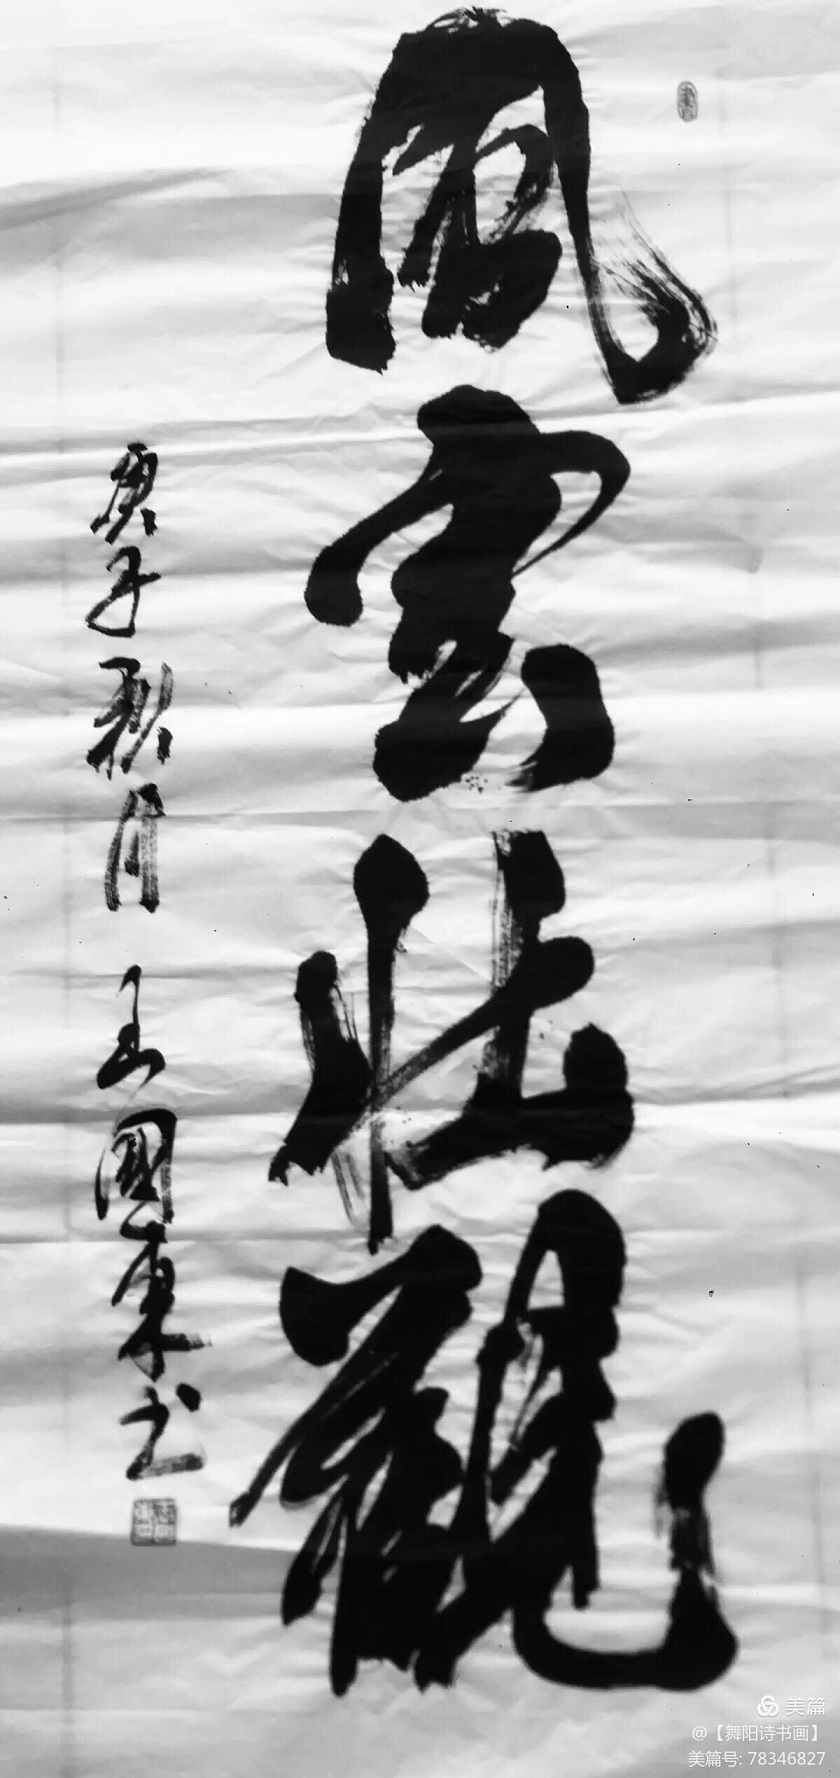 風雲壮觀
庚子秋月 國東书
美篇
@【舞阳诗书画】
美篇号: 78346827